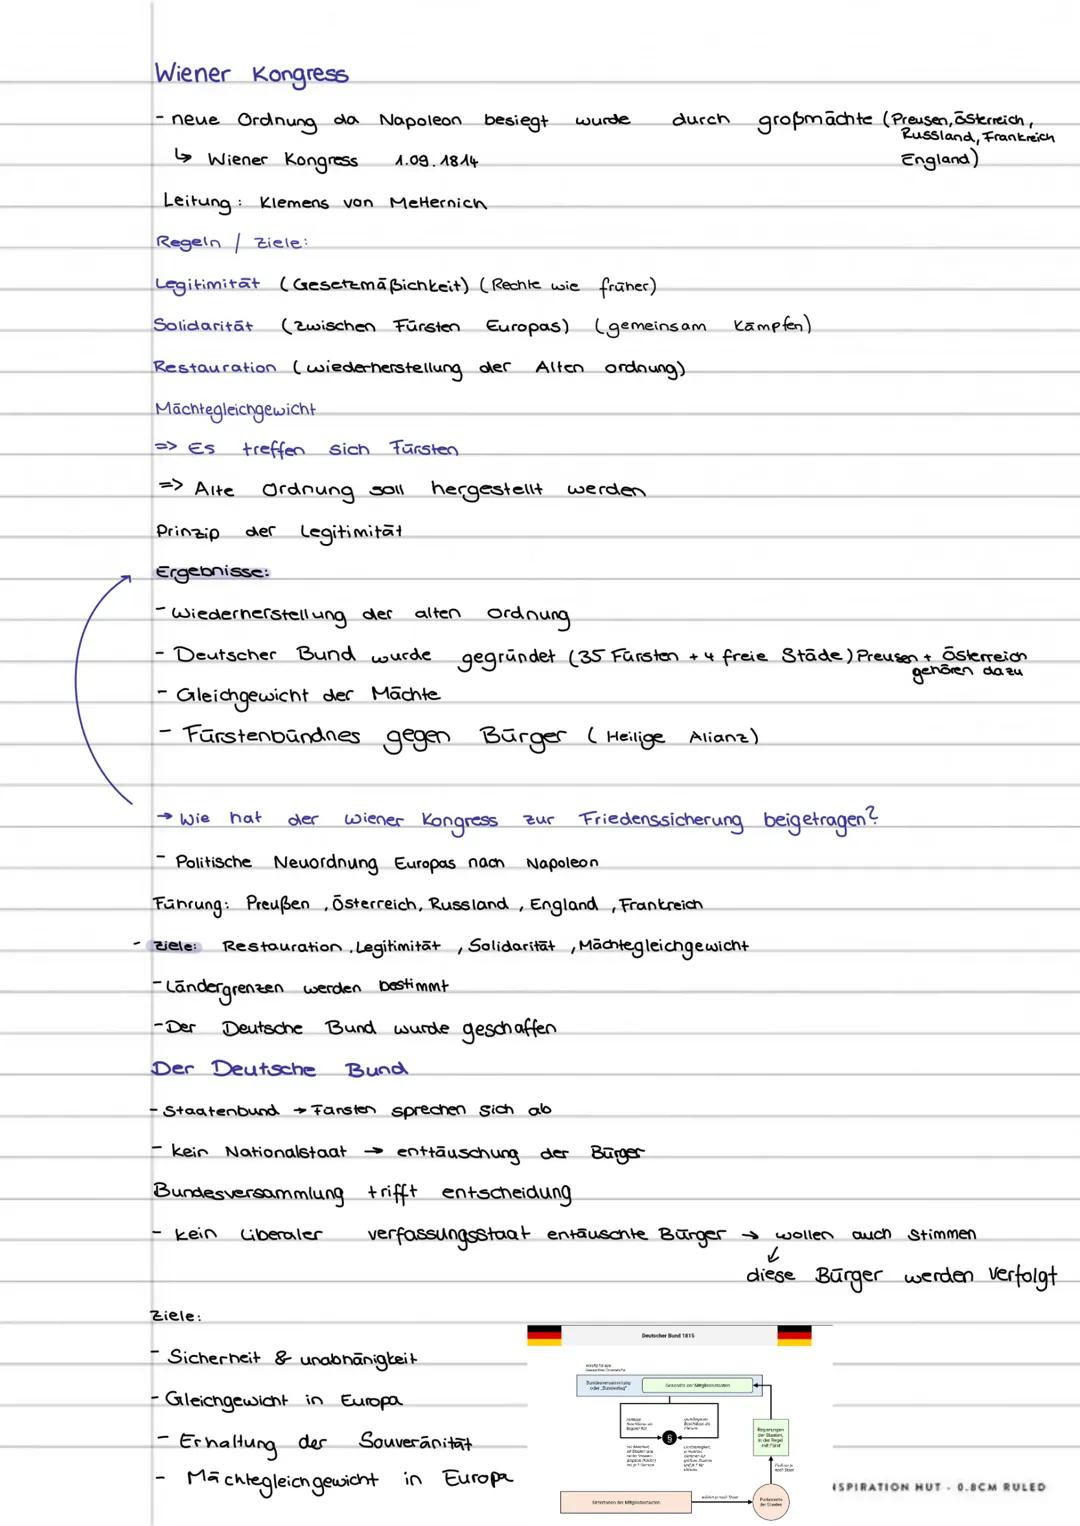 Wiener Kongress
- neue Ordnung da Napoleon besiegt wurde durch großmächte (Preusen, Österreich,
Russland, Frankreich
↳ Wiener Kongress 1.09.1814 England)
Leitung: Klemens von Metternich
Regeln / Ziele:
Legitimität (Gesetzmäßichkeit) (Rechte wie früher)
Solidarität (zwischen Fürsten Europas) (gemeinsam kämpfen)
Restauration (wiederherstellung der Alten ordnung)
Mächtegleichgewicht
=> Es treffen sich Fürsten
=> Alte Ordnung soll hergestellt werden
Prinzip der Legitimität
Ergebnisse:
- Wiederherstellung der alten Ordnung
- Deutscher Bund wurde gegründet (35 Fürsten + 4 freie Städe) Preusen + Österreich
gehören dazu
- Gleichgewicht der Mächte
- Fürstenbündnes gegen Bürger (Heilige Alianz)
→ Wie hat der wiener Kongress zur Friedenssicherung beigetragen?
- Politische Neuordnung Europas nach Napoleon
Führung: Preußen, Österreich, Russland, England, Frankreich
- Ziele: Restauration, Legitimität, Solidarität, Mächtegleichgewicht
- Ländergrenzen werden bestimmt
- Der Deutsche Bund wurde geschaffen
Der Deutsche Bund
- Staatenbund → Fürsten sprechen sich ab
- kein Nationalstaat → enttäuschung der Bürger
Bundesversammlung trifft entscheidung
- kein Liberaler verfassungsstaat entäuschte Bürger → wollen auch Stimmen
↙
diese Bürger werden verfolgt
Ziele:
- Sicherheit & unabhänigkeit
- Gleichgewicht in Europa
- Erhaltung der Souveränität
- Mächtegleichgewicht in Europa
Deutscher Bund 1815
Bundesversammlung
oder „Bundestag"
Gesandte der Mitgliedsstaaten
§
Regierungen
der Staaten,
in der Regel
mit Fürst
Einwohner der Mitgliedsstaaten
Parlamente
der Staaten
NSPIRATION HUT - 0.8CM RULED